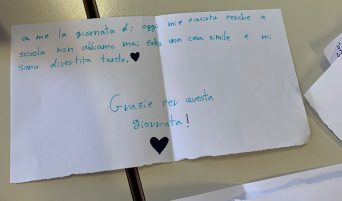 a me la giornata di oggi mi è piaciuta perche a
scuola non abbiamo mai fatto una cosa simile e mi
sono divertita tanto.
Grazie per questa
giornata!